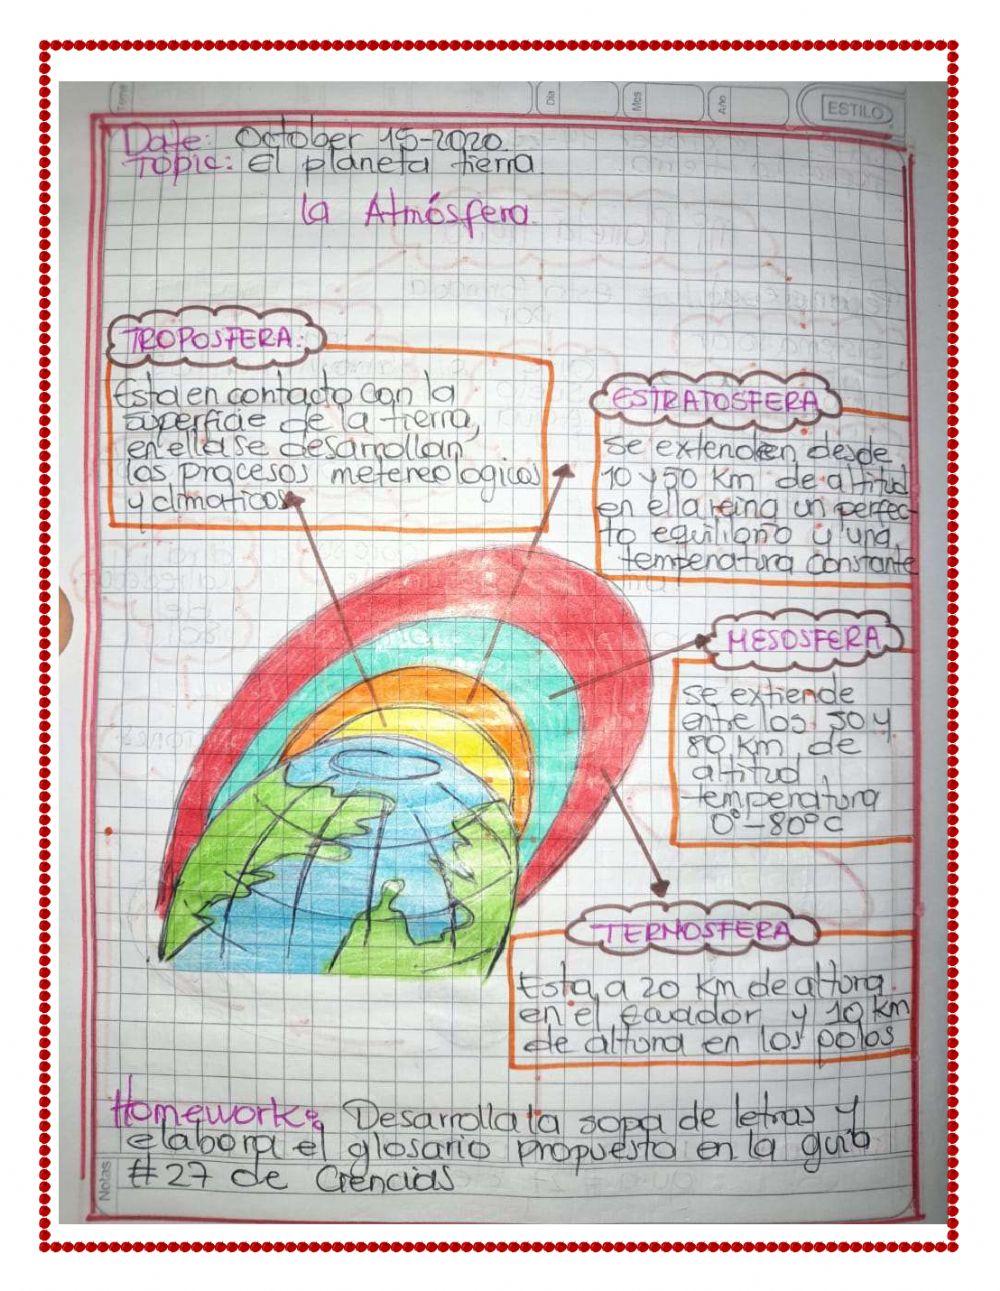 Tema
Día
Mes
Año
ESTILO
Date: October 15-2020.
Topic: El planeta tierra
la Atmósfera.
TROPOSFERA:
Esta en contacto con la
superficie de la tierra,
en ella se desarrollan
los procesos metereologicos
y climaticos
ESTRATOSFERA
se extienden desde
10 y 50 Km de altitud
en ella reina un perfec-
to equilibrio y una
temperatura constante
MESOSFERA
se extiende
entre los 50 y
80 Km de
altitud,
temperatura
0°-80°C
TERMOSFERA
Esta a 20 Km de altura
en el Ecuador y 10 Km
de altura en los polos
Homework: Desarrolla la sopa de letras y
elabora el glosario propuesto en la guia
#27 de Ciencias
Notas